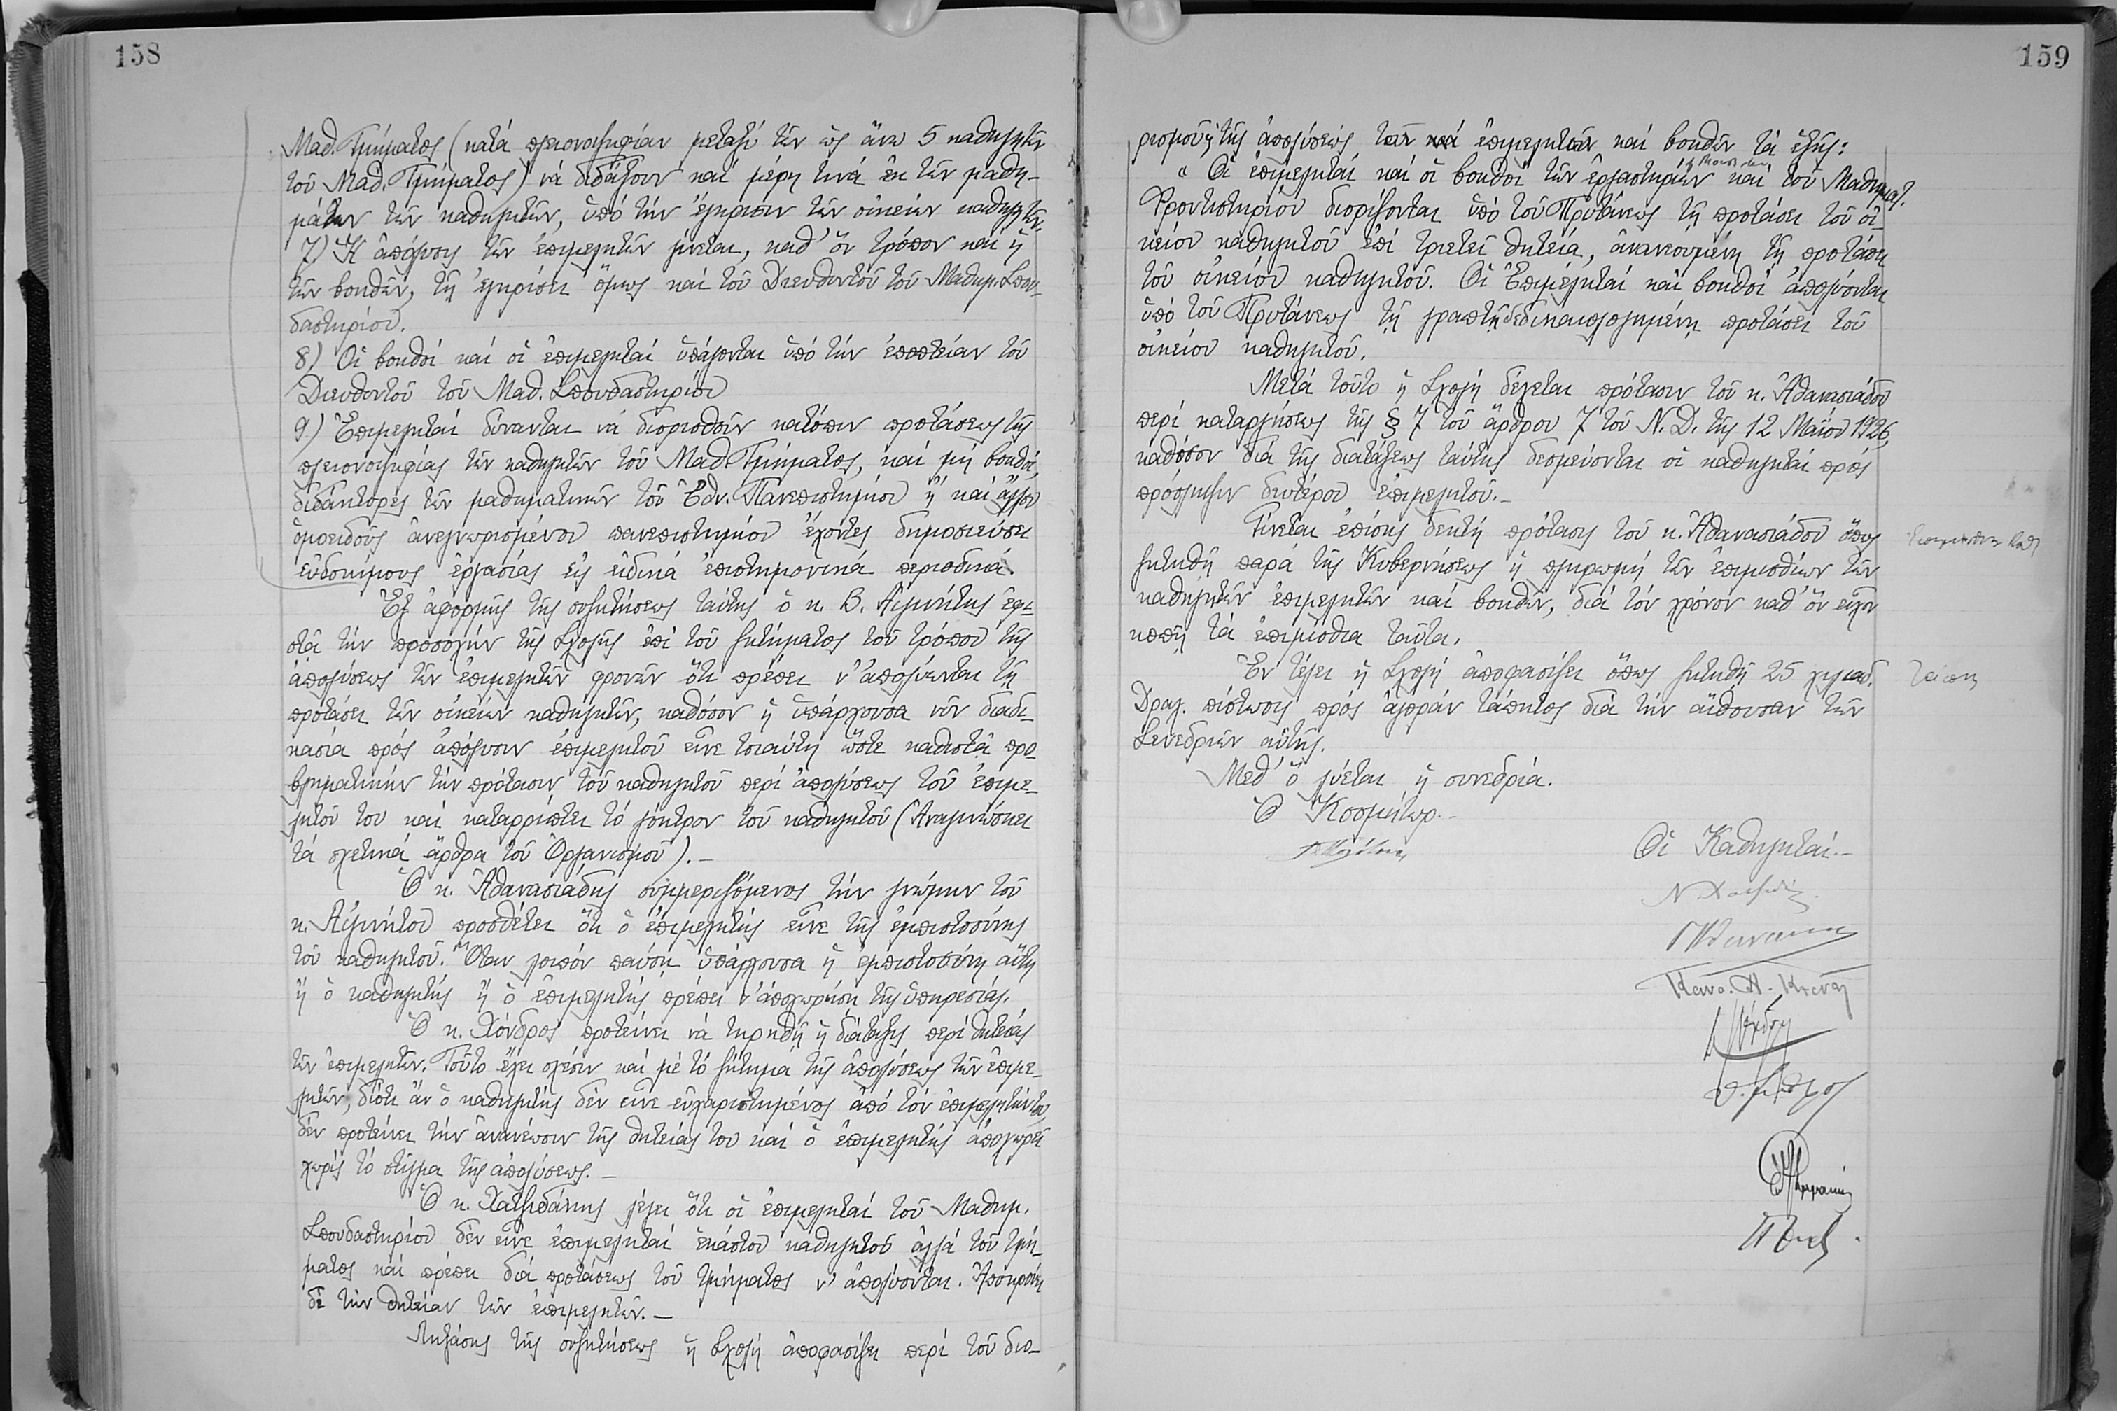 158
Μαθ. Τμήματος (κατά πλειονοψηφίαν μεταξύ τῶν ὡς ἄνω 5 καθηγητῶν
τοῦ Μαθ. Τμήματος) νά διδάξουν καί μέρη τινά ἐκ τῶν μαθη-
μάτων τῶν καθηγητῶν, ὑπό τήν ἔγκρισιν τῶν οἰκείων καθηγητῶν.
7) Ἡ ἀπόλυσις τῶν ἐπιμελητῶν γίνεται, καθ' ὅν τρόπον καί ἡ
τῶν βοηθῶν, τῇ ἐγκρίσει ὅμως καί τοῦ Διευθυντοῦ τοῦ Μαθημ. Σπου-
δαστηρίου.
8) Οἱ βοηθοί καί οἱ ἐπιμεληταί ὑπάγονται ὑπό τήν ἐποπτείαν τοῦ
Διευθυντοῦ τοῦ Μαθ. Σπουδαστηρίου
9) Ἐπιμεληταί δύνανται νά διορισθοῦν κατόπιν προτάσεως τῆς
πλειονοψηφίας τῶν καθηγητῶν τοῦ Μαθ. Τμήματος, καί μή βοηθοί,
διδάκτορες τῶν μαθηματικῶν τοῦ Ἐθν. Πανεπιστημίου ἤ καί ἄλλου
ὁμοειδοῦς ἀνεγνωρισμένου πανεπιστημίου ἔχοντες δημοσιεύσει
εὐδοκίμους ἐργασίας εἰς εἰδικά ἐπιστημονικά περιοδικά.
Ἐξ ἀφορμῆς τῆς συζητήσεως ταύτης ὁ κ. Β. Αἰγινήτης ἐφι-
στᾷ τήν προσοχήν τῆς Σχολῆς ἐπί τοῦ ζητήματος τοῦ τρόπου τῆς
ἀπολύσεως τῶν ἐπιμελητῶν φρονῶν ὅτι πρέπει ν' ἀπολύωνται τῇ
προτάσει τῶν οἰκείων καθηγητῶν, καθόσον ἡ ὑπάρχουσα νῦν διαδι-
κασία πρός ἀπόλυσιν ἐπιμελητοῦ εἶνε τοιαύτη ὥστε καθιστᾷ προ-
βληματικήν τήν πρότασιν τοῦ καθηγητοῦ περί ἀπολύσεως τοῦ ἐπιμε-
λητοῦ του καί καταρρίπτει τό γόητρον τοῦ καθηγητοῦ (Ἀναγινώσκει
τά σχετικά ἄρθρα τοῦ Ὀργανισμοῦ).-
Ὁ κ. Ἀθανασιάδης συμμεριζόμενος τήν γνώμην τοῦ
κ. Αἰγινήτου προσθέτει ὅτι ὁ ἐπιμελητής εἶνε τῆς ἐμπιστοσύνης
τοῦ καθηγητοῦ. Ὅταν λοιπόν παύσῃ ὑπάρχουσα ἡ ἐμπιστοσύνη αὕτη
ἤ ὁ καθηγητής ἤ ὁ ἐπιμελητής πρέπει ν' ἀποχωρήσῃ τῆς ὑπηρεσίας.
Ὁ κ. Χόνδρος προτείνει νά τηρηθῇ ἡ διάταξις περί θητείας
τῶν ἐπιμελητῶν. Τοῦτο ἔχει σχέσιν καί μέ τό ζήτημα τῆς ἀπολύσεως τῶν ἐπιμε-
λητῶν, διότι ἄν ὁ καθηγητής δέν εἶνε εὐχαριστημένος ἀπό τόν ἐπιμελητήν του
δέν προτείνει τήν ἀνανέωσιν τῆς θητείας του καί ὁ ἐπιμελητής ἀποχωρεῖ
χωρίς τό στίγμα τῆς ἀπολύσεως.-
Ὁ κ. Χατζιδάκις λέγει ὅτι οἱ ἐπιμεληταί τοῦ Μαθημ.
Σπουδαστηρίου δέν εἶνε ἐπιμεληταί ἑκάστου καθηγητοῦ ἀλλά τοῦ τμή-
ματος καί πρέπει διά προτάσεως τοῦ τμήματος ν' ἀπολύονται. Ἀποκρούει
δέ τήν θητείαν τῶν ἐπιμελητῶν.-
Ληξάσης τῆς συζητήσεως ἡ Σχολή ἀποφασίζει περί τοῦ διο-
159
ρισμοῦ καί τῆς ἀπολύσεως τῶν ἐπιμελητῶν καί βοηθῶν τά ἑξῆς:
" Οἱ ἐπιμεληταί καί οἱ βοηθοί τῶν ἐργαστηρίων καί τοῦ Μαθημ.
Φροντιστηρίου διορίζονται ὑπό τοῦ Πρυτάνεως τῇ προτάσει τοῦ οἰ-
κείου καθηγητοῦ ἐπί τριετεῖ θητείᾳ, ἀνανεουμένῃ τῇ προτάσει
τοῦ οἰκείου καθηγητοῦ. Οἱ Ἐπιμεληταί καί βοηθοί ἀπολύονται
ὑπό τοῦ Πρυτάνεως τῇ γραπτῇ δεδικαιολογημένῃ προτάσει τοῦ
οἰκείου καθηγητοῦ.
Μετά τοῦτο ἡ Σχολή δέχεται πρότασιν τοῦ κ. Ἀθανασιάδου
περί καταργήσεως τῆς § 7 τοῦ ἄρθρου 7 τοῦ Ν. Δ. τῆς 12 Μαΐου 1926,
καθόσον διά τῆς διατάξεως ταύτης δεσμεύονται οἱ καθηγηταί πρός
πρόσληψιν δευτέρου ἐπιμελητοῦ.-
Γίνεται ἐπίσης δεκτή πρότασις τοῦ κ. Ἀθανασιάδου ὅπως
ζητηθῇ παρά τῆς Κυβερνήσεως ἡ πληρωμή τῶν ἐπιμισθίων τῶν
καθηγητῶν ἐπιμελητῶν καί βοηθῶν, διά τόν χρόνον καθ' ὅν εἶχον
κοπῇ τά ἐπιμίσθια ταῦτα.
Ἐν τέλει ἡ Σχολή ἀποφασίζει ὅπως ζητηθῇ 25 χιλιάδ.
Δραχ. πίστωσις πρός ἀγοράν τάπητος διά τήν αἴθουσαν τῶν
Συνεδριῶν αὐτῆς.
Τάπης
Μεθ' ὅ λύεται ἡ συνεδρία.
Ὁ Κοσμήτωρ.-
Οἱ Καθηγηταί.-